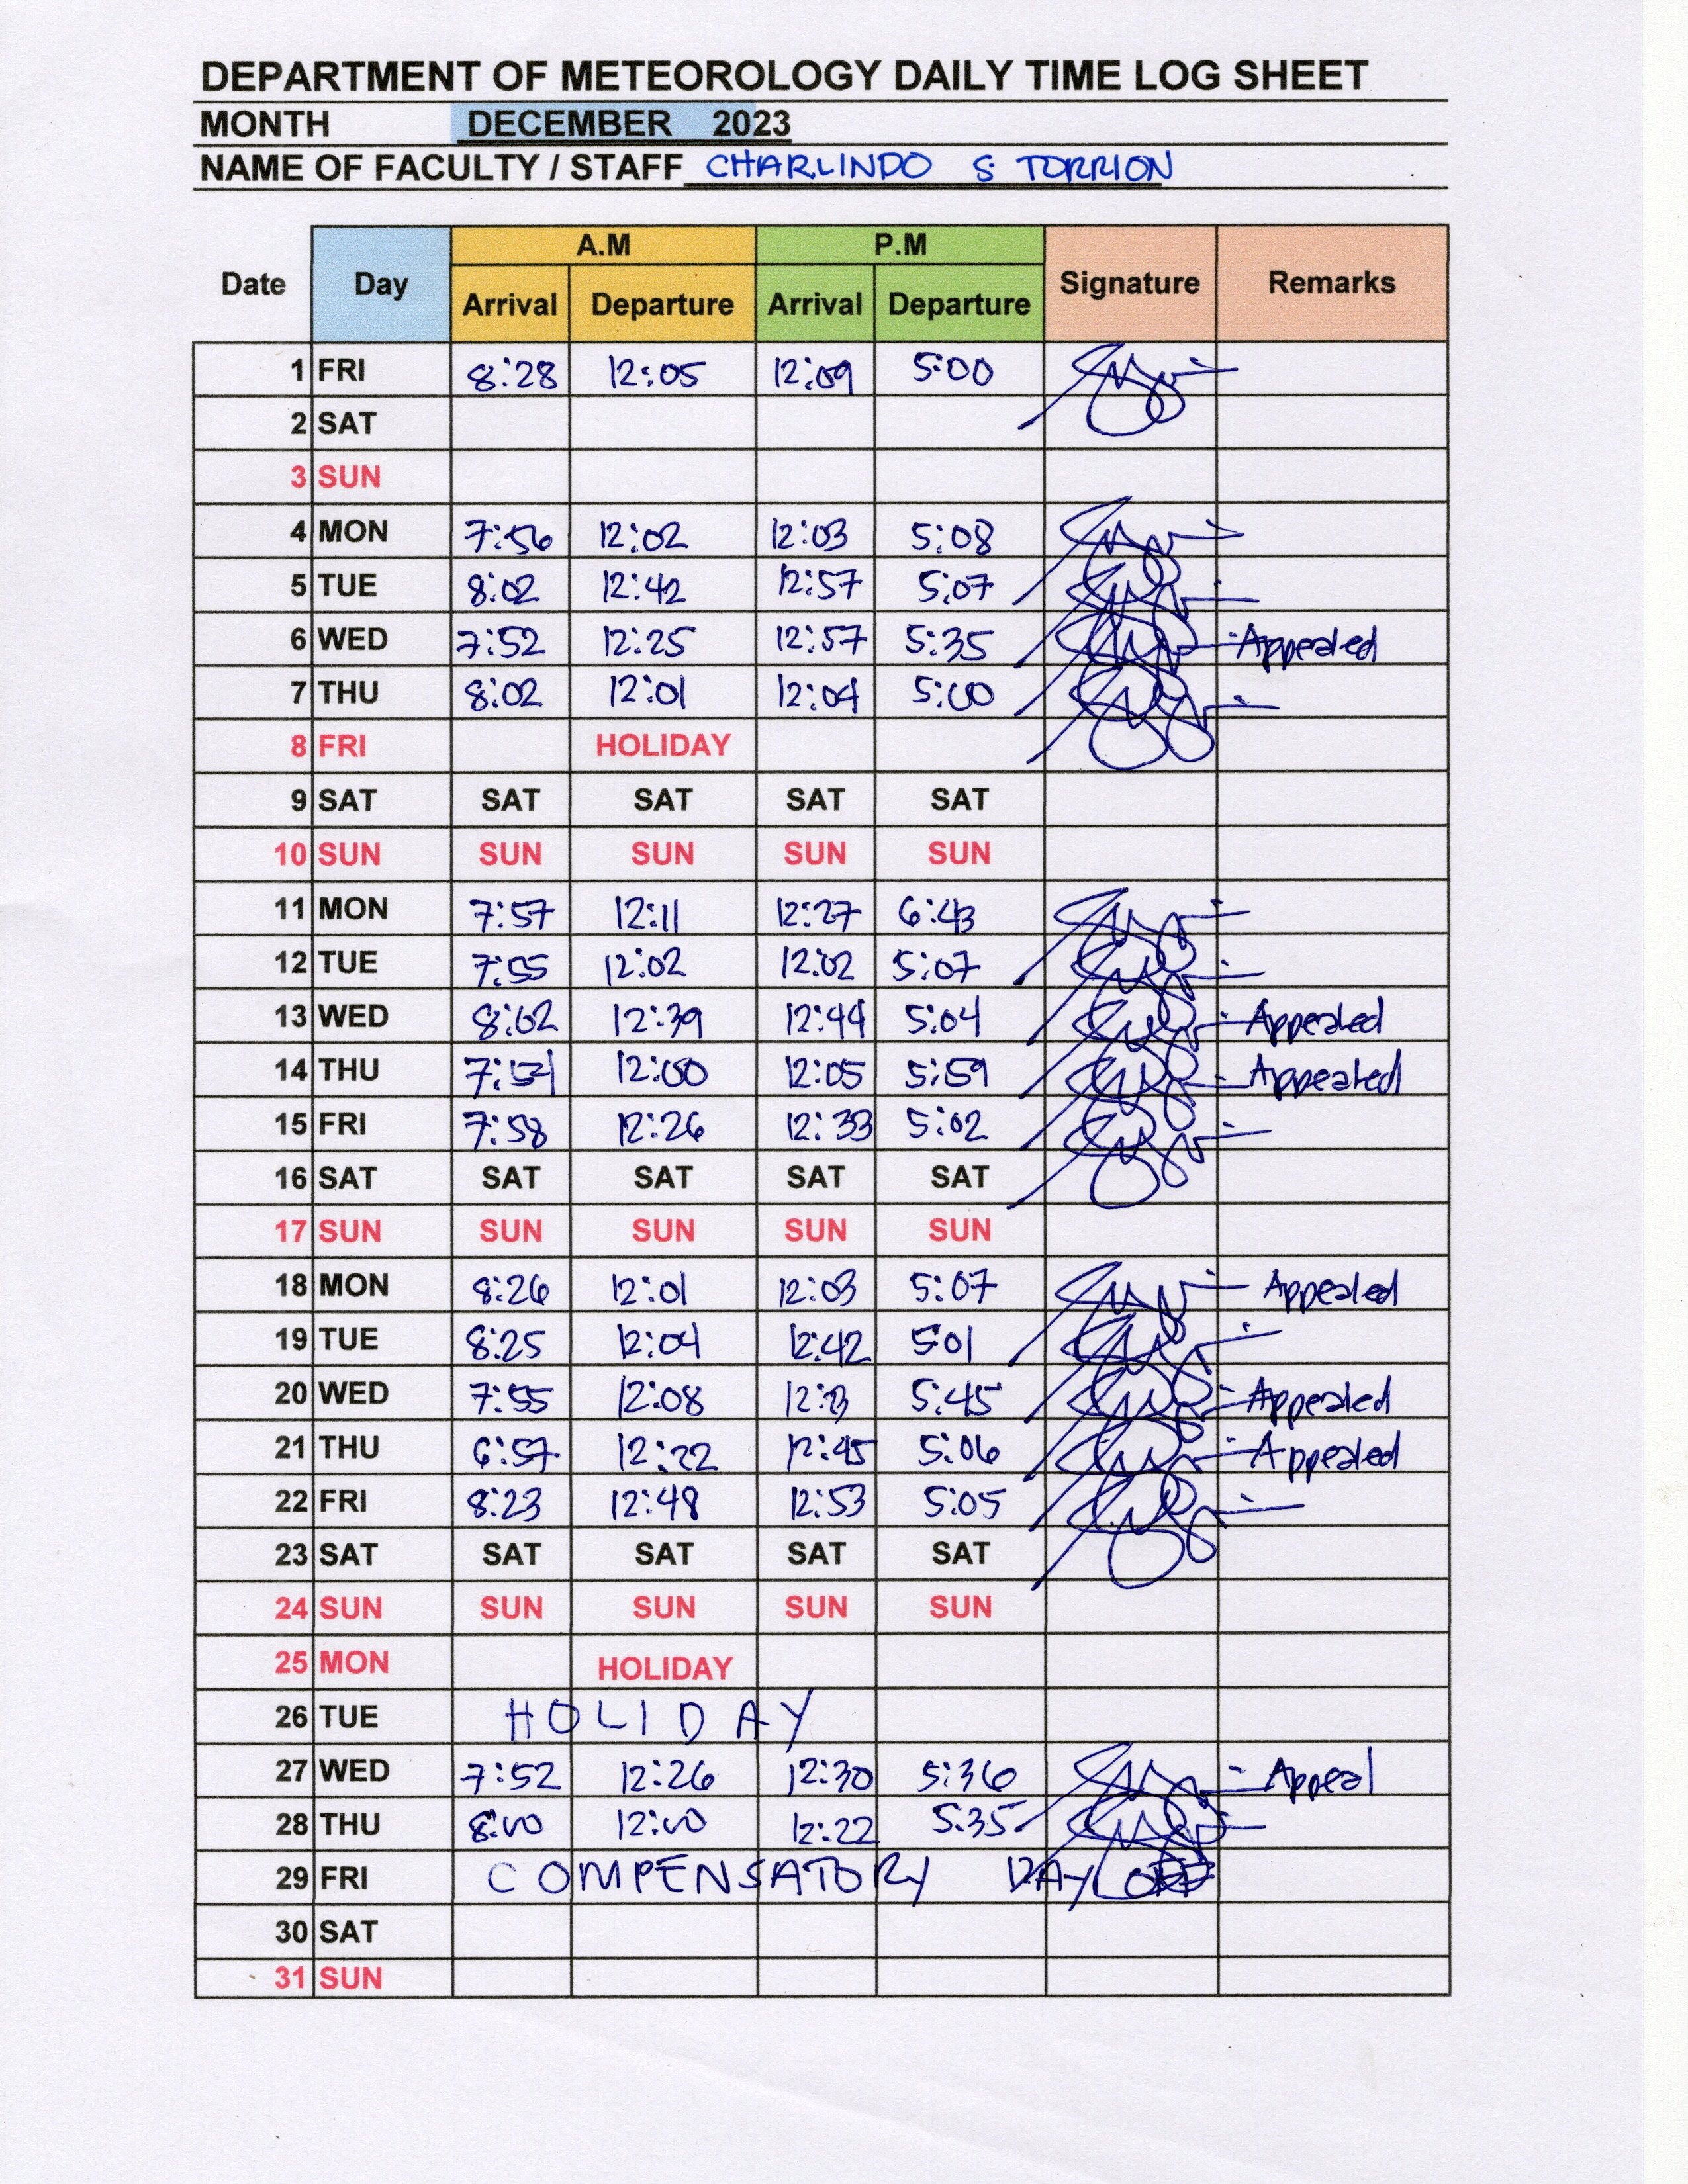 DEPARTMENT OF METEOROLOGY DAILY TIME LOG SHEET
MONTH DECEMBER 2023
NAME OF FACULTY / STAFF CHARLINDO S TORRION
Date Day A.M P.M Signature Remarks
Arrival Departure Arrival Departure
1 FRI 8:28 12:05 12:09 5:00
2 SAT
3 SUN
4 MON 7:56 12:02 12:03 5:08
5 TUE 8:02 12:42 12:57 5:07
6 WED 7:52 12:25 12:57 5:35 Appealed
7 THU 8:02 12:01 12:04 5:00
8 FRI HOLIDAY
9 SAT SAT SAT SAT SAT
10 SUN SUN SUN SUN SUN
11 MON 7:57 12:11 12:27 6:43
12 TUE 7:55 12:02 12:02 5:07
13 WED 8:02 12:39 12:44 5:04 Appealed
14 THU 12:00 12:05 5:59 Appealed
15 FRI 7:58 12:26 12:33 5:02
16 SAT SAT SAT SAT SAT
17 SUN SUN SUN SUN SUN
18 MON 8:26 12:01 12:03 5:07 Appealed
19 TUE 8:25 12:04 12:42 5:01
20 WED 7:55 12:08 5:45 Appealed
21 THU 6:57 12:22 12:45 5:06 Appealed
22 FRI 8:23 12:48 12:53 5:05
23 SAT SAT SAT SAT SAT
24 SUN SUN SUN SUN SUN
25 MON HOLIDAY
26 TUE HOLIDAY
27 WED 7:52 12:26 12:30 5:36 Appeal
28 THU 8:00 12:00 12:22 5:35
29 FRI COMPENSATORY DAY OFF
30 SAT
31 SUN